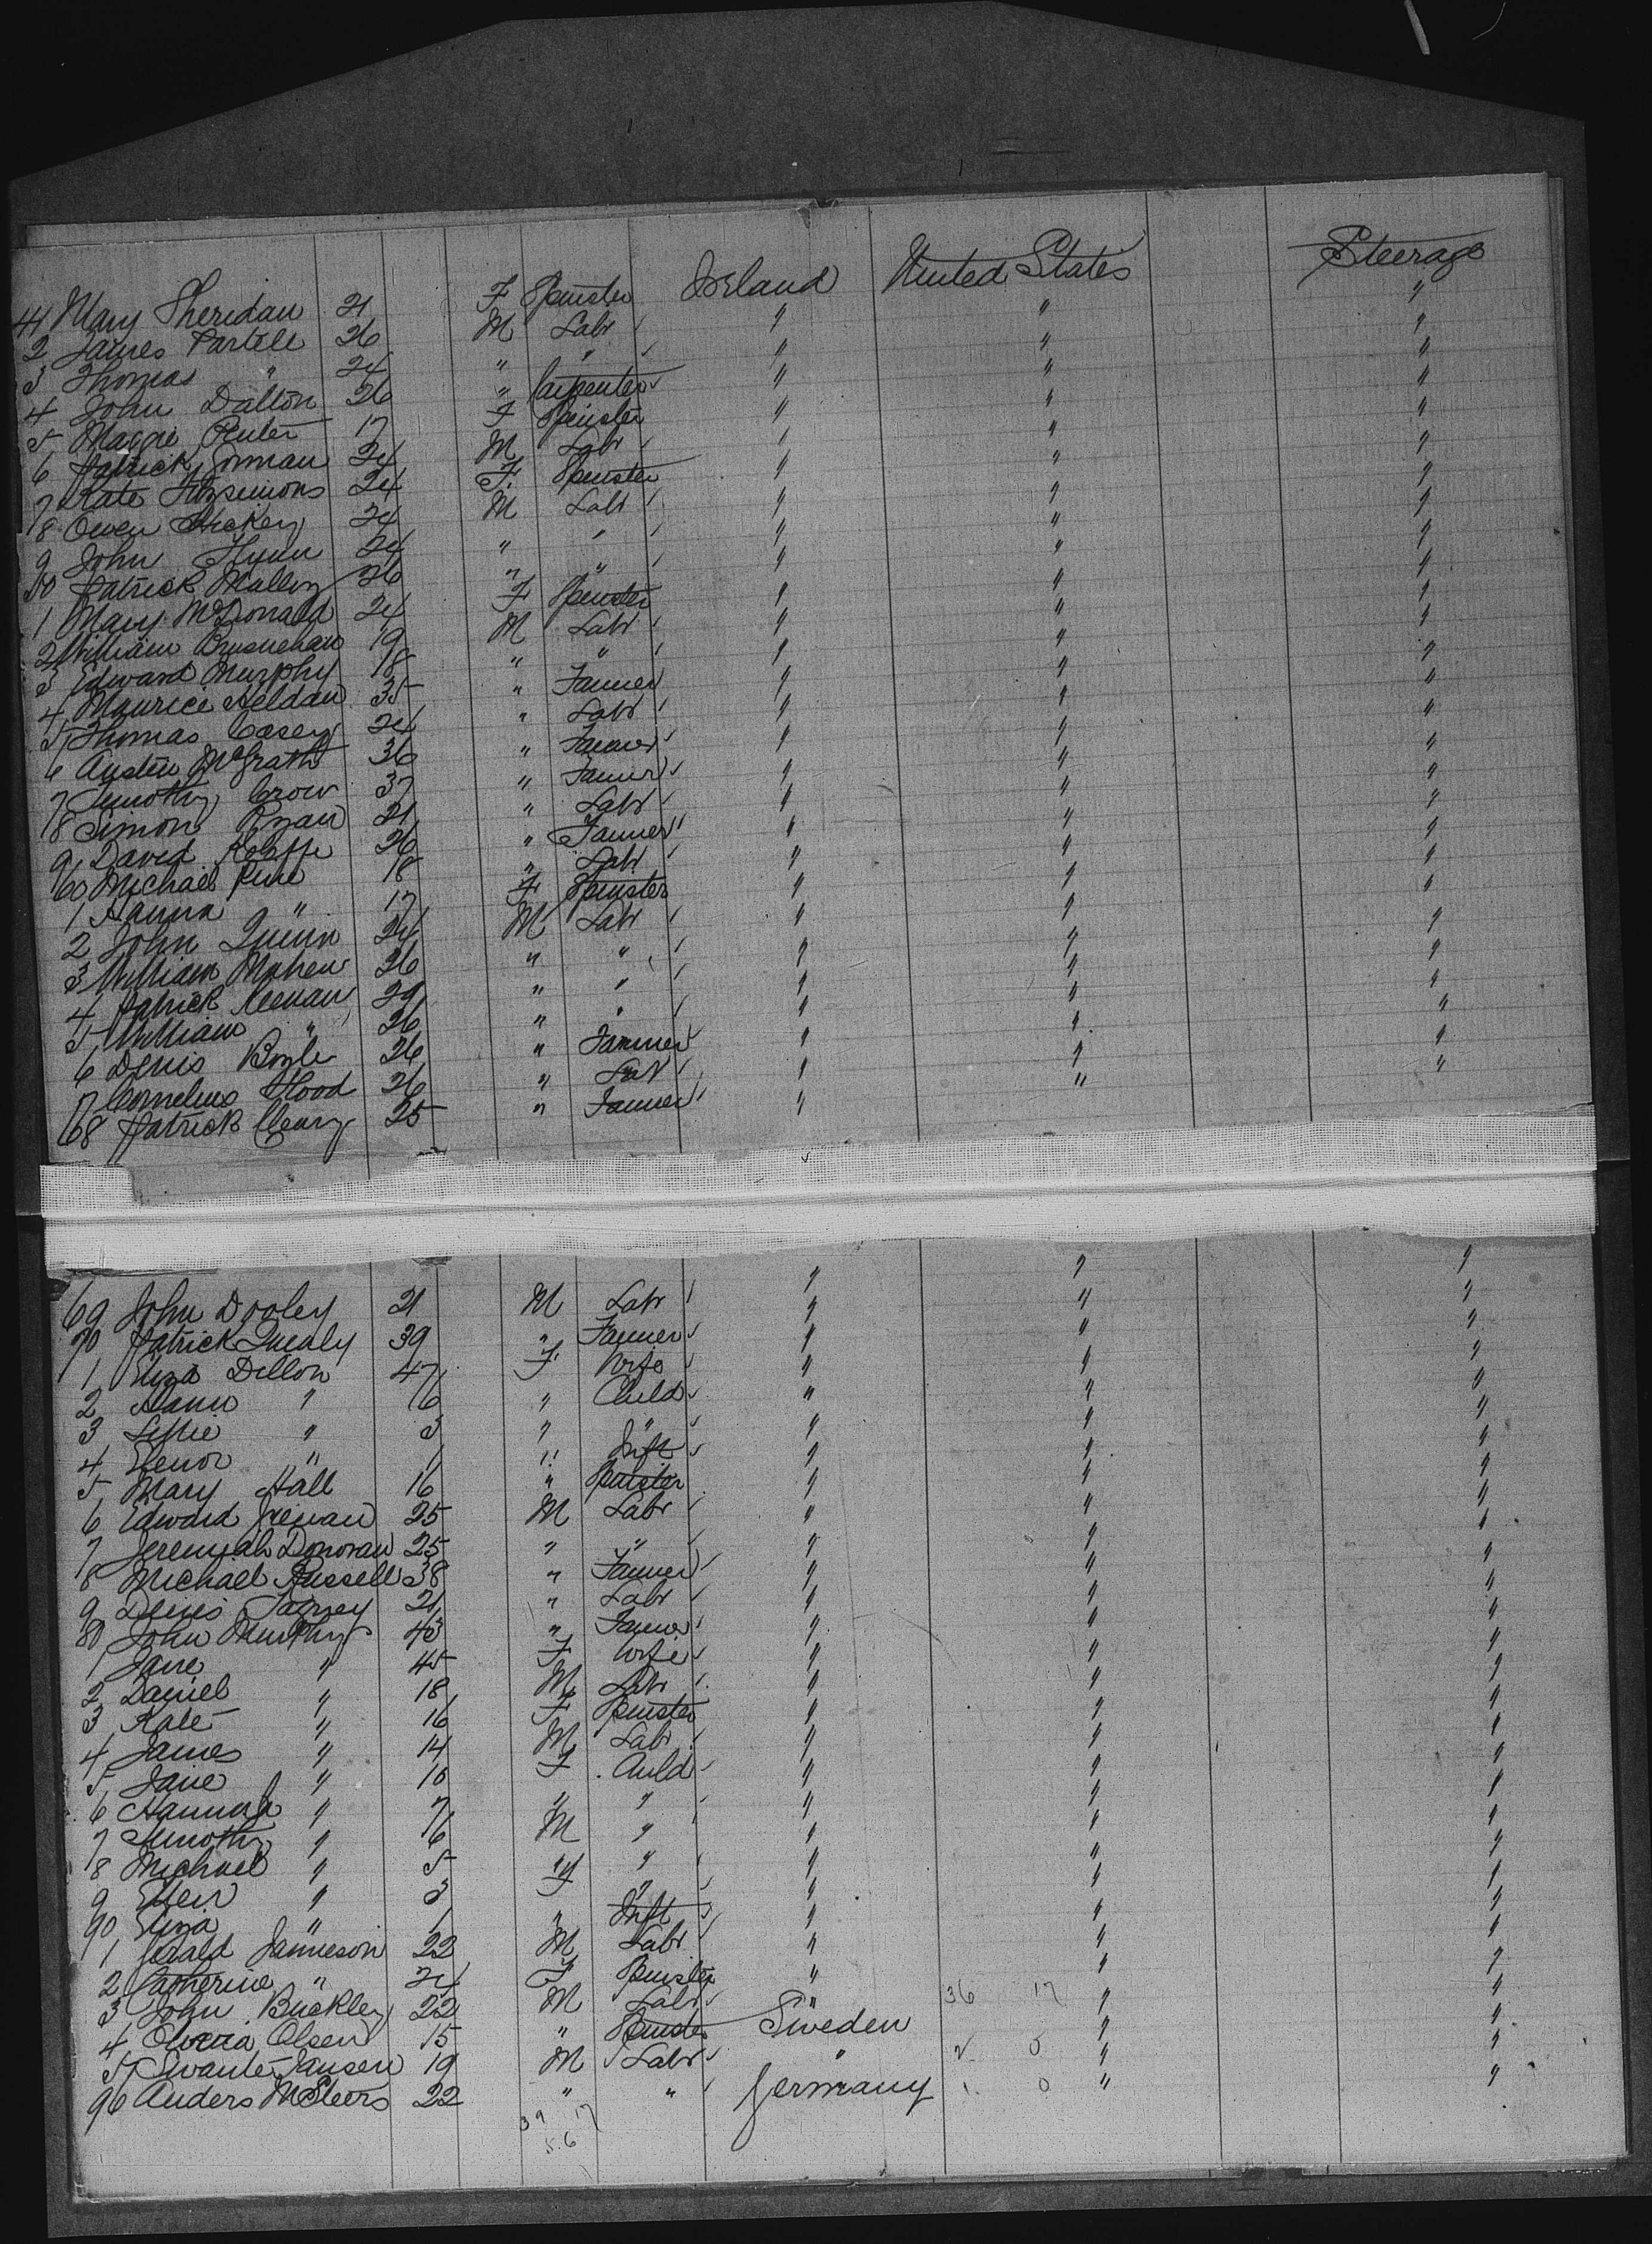 41 Mary Sheridan 21 F Spinster Ireland United States Steerage
2 James Partell 26 M Labr " " "
3 Thomas " 24 " " " " "
4 John Dalton 26 " Carpenter " " "
5 Maggie 17 F Spinster " " "
6 Patrick Gorman 24 M Labr " " "
7 Kate Fitzsimons 24 F. Spinster " " "
8 Owen Hickey 24 M Labr " " "
9 John Flynn 24 " " " " "
50 Patrick Malloy 26 " " " " "
1 Mary McDonald 24 F Spinster " " "
2 William Brusnehan 19 M Labr " " "
3 Edward Murphy 18 " " " " "
4 Maurice 35 " Farmer " " "
5 Thomas Casey 24 " Labr " " "
6 Austin McGrath 36 " Farmer " " "
7 Timothy Crow 37 " Farmer " " "
8 Simon Ryan 21 " Labr " " "
9 David 26 " Farmer " " "
60 Michael 18 " Labr " " "
1 Hanna " 17 F Spinster " " "
2 John Quinn 24 M Labr " " "
3 William 26 " " " " "
4 Patrick Keenan 29 " " " " "
5 William " 26 " " " " "
6 Denis Boyle 26 " Farmer " " "
7 Cornelius Hood 26 " Labr " " "
68 Patrick Cleary 25 " Farmer " " "
69 John Dooley 21 M Labr " " "
70 Patrick Quealy 39 " Farmer " " "
1 Eliza Dillon 47 F Wife " " "
2 Hann " 6 " Child " " "
3 " 3 " " " " "
4 Elenor " 1 " Inft " " "
5 Mary Hall 16 " Spinster " " "
6 Edward 25 M Labr " " "
7 Jeremiah Donovan 25 " " " " "
8 Michael Russell 38 " Farmer " " "
9 Denis 21 " Labr " " "
80 John Murphy 43 " Farmer " " "
1 Jane " 45 F Wife " " "
2 Daniel " 18 M Labr " " "
3 Kate " 16 F Spinster " " "
4 James " 14 M Labr " " "
5 Jane " 10 F Child " " "
6 Hannah " 7 " " " " "
7 Timothy " 6 M " " " "
8 Michael " 5 " " " " "
9 Ellen " 3 F " " " "
90 Eliza " 1 " Inft " " "
1 Gerald Jamieson 22 M Labr " " "
2 Catherine " 24 F Spinster " " "
3 John Buckley 22 M Labr " 36 17 " "
4 Olsen 15 " Spinster Sweden " "
5 Swante Jansen 19 M Labr " 2 0 " "
96 Anders 22 " " Germany 1 0 " "
39 17
56